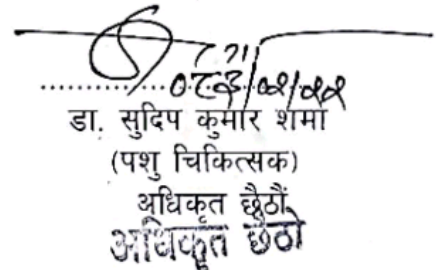 डा. सुदिप कुमार शर्मा
(पशु चिकित्सक)
अधिकृत छैठौं
अधिकृत छैठौ